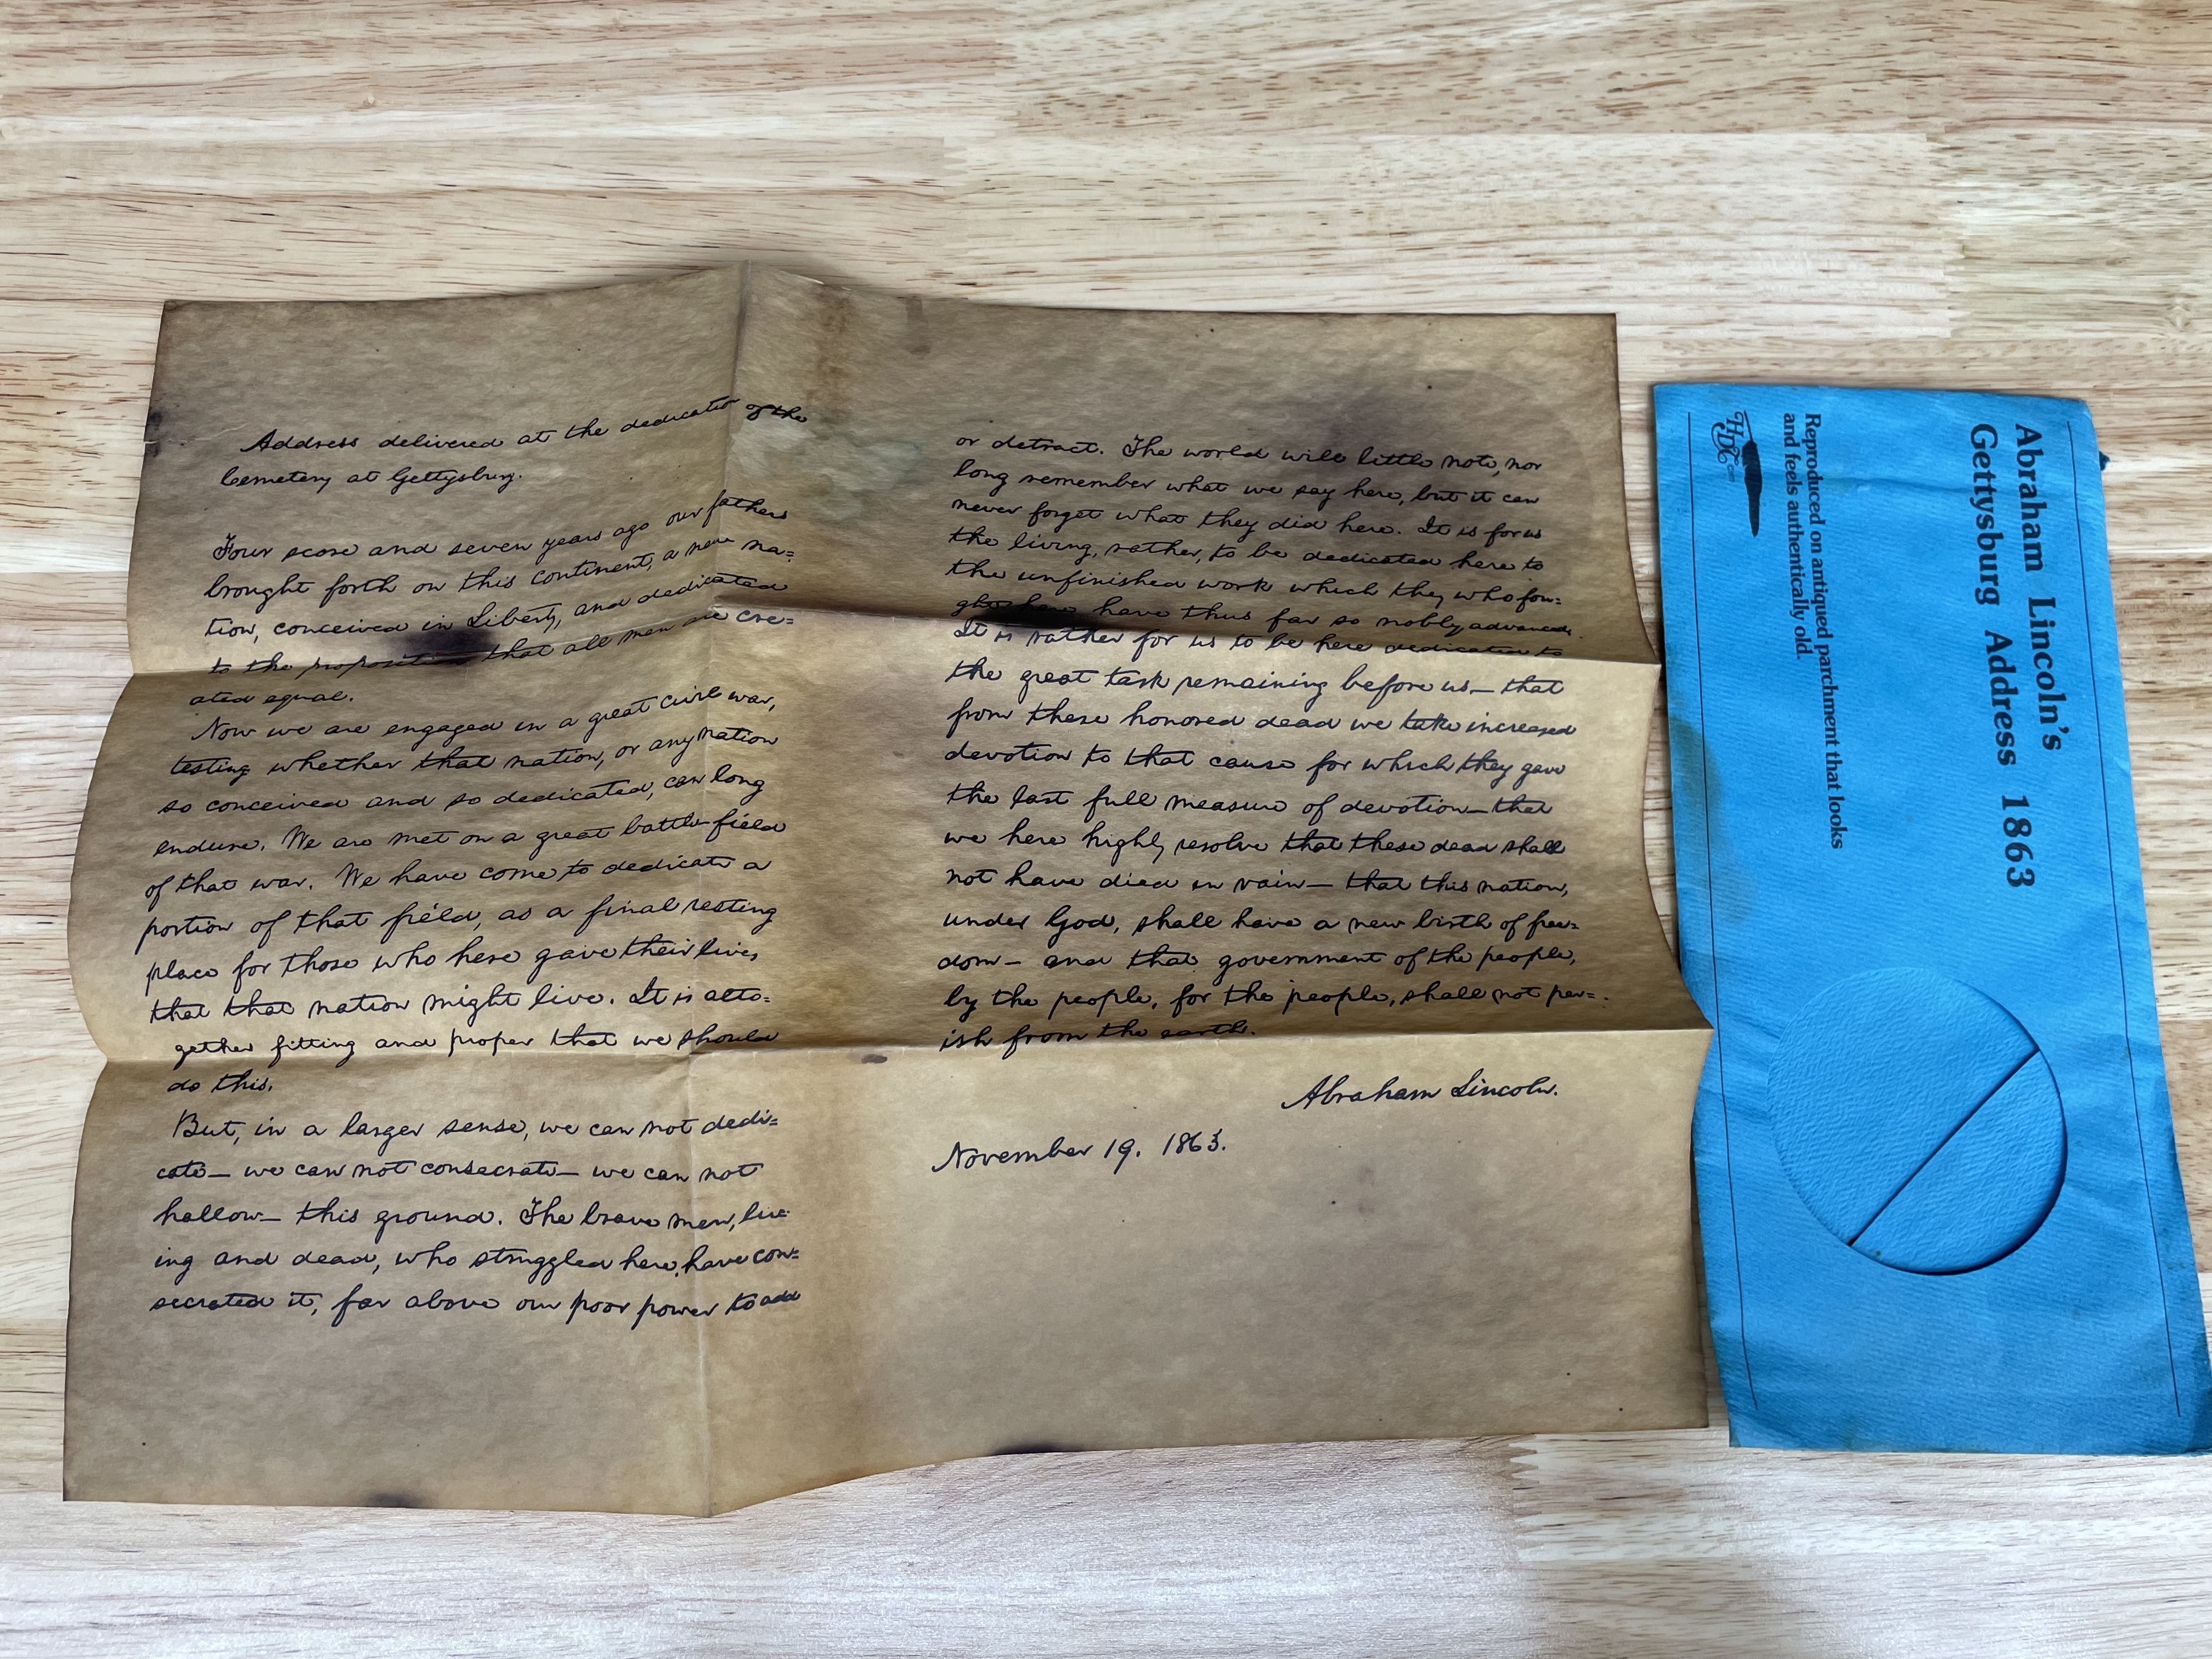 Address delivered at the dedication of the
Cemetery at Gettysburg.
Four score and seven years ago our fathers
brought forth on this continent, a new na=
tion, conceived in Liberty, and dedicated
to the proposition that all men are cre=
ated equal.
Now we are engaged in a great civil war,
testing whether that nation, or any nation
so conceived and so dedicated, can long
endure. We are met on a great battle-field
of that war. We have come to dedicate a
portion of that field, as a final resting
place for those who here gave their lives
that that nation might live. It is alto=
gether fitting and proper that we should
do this.
But, in a larger sense, we can not dedi=
cate— we can not consecrate— we can not
hallow— this ground. The brave men, liv=
ing and dead, who struggled here, have con=
secrated it, far above our poor power to add
or detract. The world will little note, nor
long remember what we say here, but it can
never forget what they did here. It is for us
the living, rather, to be dedicated here to
the unfinished work which they who fou=
ght here have thus far so nobly advanced.
It is rather for us to be here dedicated to
the great task remaining before us— that
from these honored dead we take increased
devotion to that cause for which they gave
the last full measure of devotion— that
we here highly resolve that these dead shall
not have died in vain— that this nation,
under God, shall have a new birth of free=
dom— and that government of the people,
by the people, for the people, shall not per=
ish from the earth.
Abraham Lincoln.
November 19. 1863.
Abraham Lincoln's
Gettysburg Address 1863
Reproduced on antiqued parchment that looks
and feels authentically old.